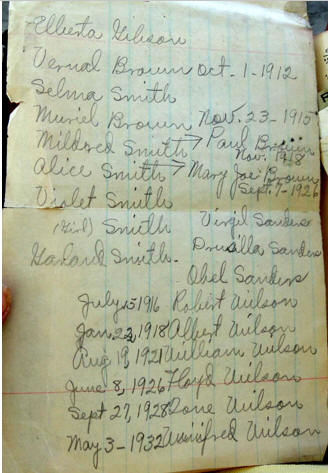 Elberta Gibson
Vernal Brown Oct. 1-1912
Selma Smith
Muriel Brown Nov. 23-1915
Mildred Smith → Paul Brown
Nov. 1918
Alice Smith → Mary Joe Brown
Sept. 7-1926
Violet Smith
(Girl) Smith Virgil Sanders
Garland Smith. Drusilla Sanders
Obel Sanders
July 15 1916 Robert Wilson
Jan 22, 1918 Albert Wilson
Aug 19, 1921 William Wilson
June 8, 1926 Floyd Wilson
Sept 27, 1928 Ione Wilson
May 3-1932 Winifred Wilson